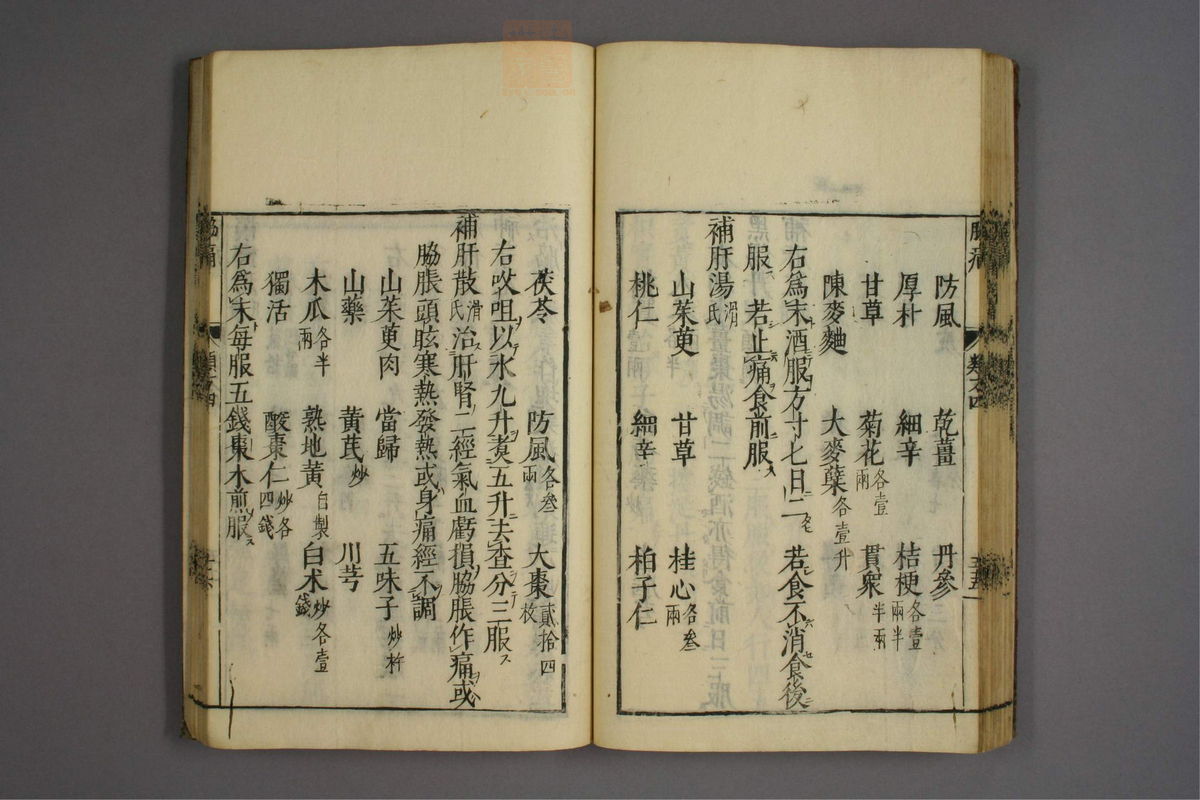 防風 乾薑 丹參
厚朴 細辛 桔梗各壹兩半
甘草 菊花各壹兩 貫衆半兩
陳麥麯 大麥蘗各壹升
右爲末酒服方寸七日二 若食不消食後
服 若止痛食前服
補肝湯滑氏
山茱萸 甘草 桂心各叁兩
桃仁 細辛 柏子仁
茯苓 防風各叁兩 大棗貳拾四枚
右㕮咀以水九升煮五升去査分三服
補肝散滑氏治肝腎二經氣血虧損脇脹作痛或
脇脹頭眩寒熱發熱或身痛經不調
山茱萸肉 當歸 五味子炒杵
山藥 黃芪炒 川芎
木瓜各半兩 熟地黃自製 白术炒各壹錢
獨活 酸棗仁炒各四錢
右爲末每服五錢棗水煎服
脇痛